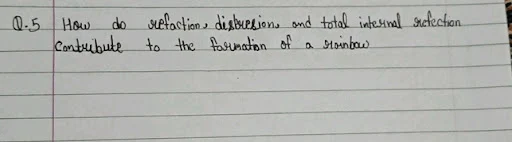 Q.5 How do refaction, disbresion, and total internal refection
Contribute to the formation of a rainbow